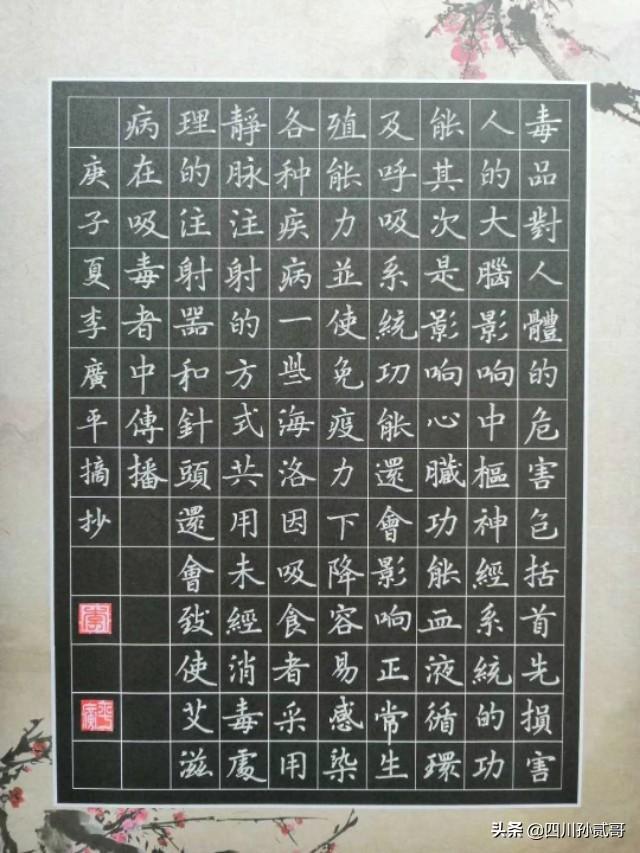 毒品對人體的危害包括首先損害
人的大腦影响中樞神經系統的功
能其次是影响心臟功能血液循環
及呼吸系統功能還會影响正常生
殖能力並使免疫力下降容易感染
各种疾病一些海洛因吸食者采用
靜脉注射的方式共用未經消毒處
理的注射器和針頭還會致使艾滋
病在吸毒者中傳播
庚子夏李廣平摘抄
头条 @四川孙贰哥